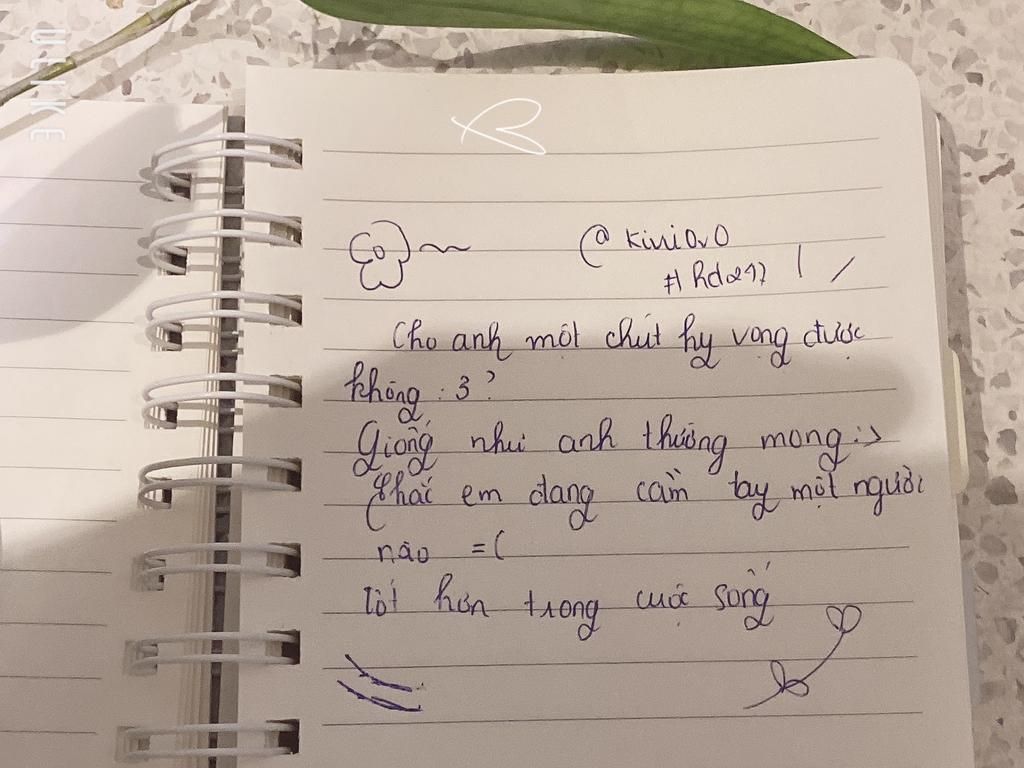 ULIKE
@ kiwi0v0
#hda
Cho anh một chút hy vọng được
không :3?
Giống như anh thường mong :>
Chắc em đang cầm tay một người
nào =(
tốt hơn trong cuộc sống